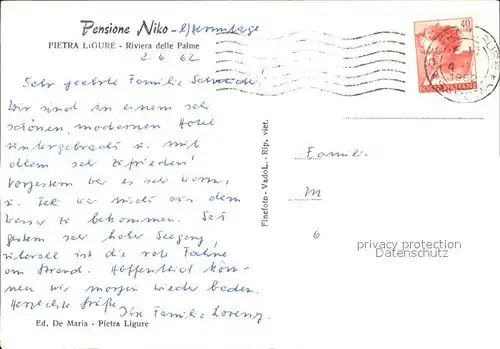 Pensione Niko - l'Hermitage
PIETRA LIGURE - Riviera delle Palme
2.6 62
Sehr geehrte Familie
Wir sind in einem sehr
schönen, modernen Hotel
untergebracht u. mit
allem sehr zufrieden!
Vorgestern war es sehr warm,
u. war nicht aus dem
Wasser zu bekommen. Seit
gestern sehr hoher Seegang,
überall ist die rote Fahne
am Strand. Hoffentlich kön-
nen wir morgen wieder baden.
Herzliche Grüße
Ihre Familie Lorenz
Ed. De Maria - Pietra Ligure
Finefoto - VadoL. - Rip. viet.
40
Familie
M
6
privacy protection
Datenschutz